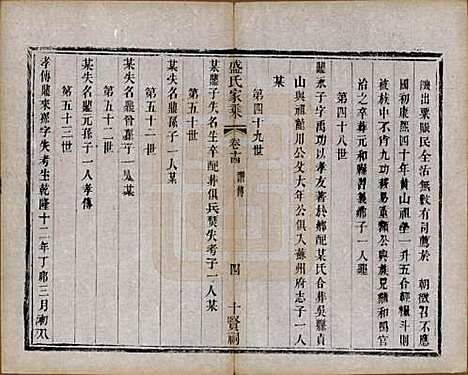 饑出粟賑民全活無數有司薦於　朝徵召不應
國初康熙四十年黃山祖塋一升五合經報斗則
被族中不六功役易重類公與族兄顯和且鳴官
治之卒葬元和縣習義鄉子一人鼐
第四十八世
鼐永子字禹功以孝友著於鄉配某氏合葬吳縣貞
山與祖鯤川公文大年公俱入蘇州府志子一人
某
第四十九世
盛氏家乘　卷十四　譜傳　四　十賢祠
某鼐子失名生卒配葬俱兵燹失考子一人某
第五十世
某失名鼐孫子一人某
第五十一世
某失名鼐曾孫子一人鬼
第五十二世
某失名鼐元孫子一人孝傳
第五十三世
孝傳鼐來孫字失考生乾隆十二年丁卯三月初八